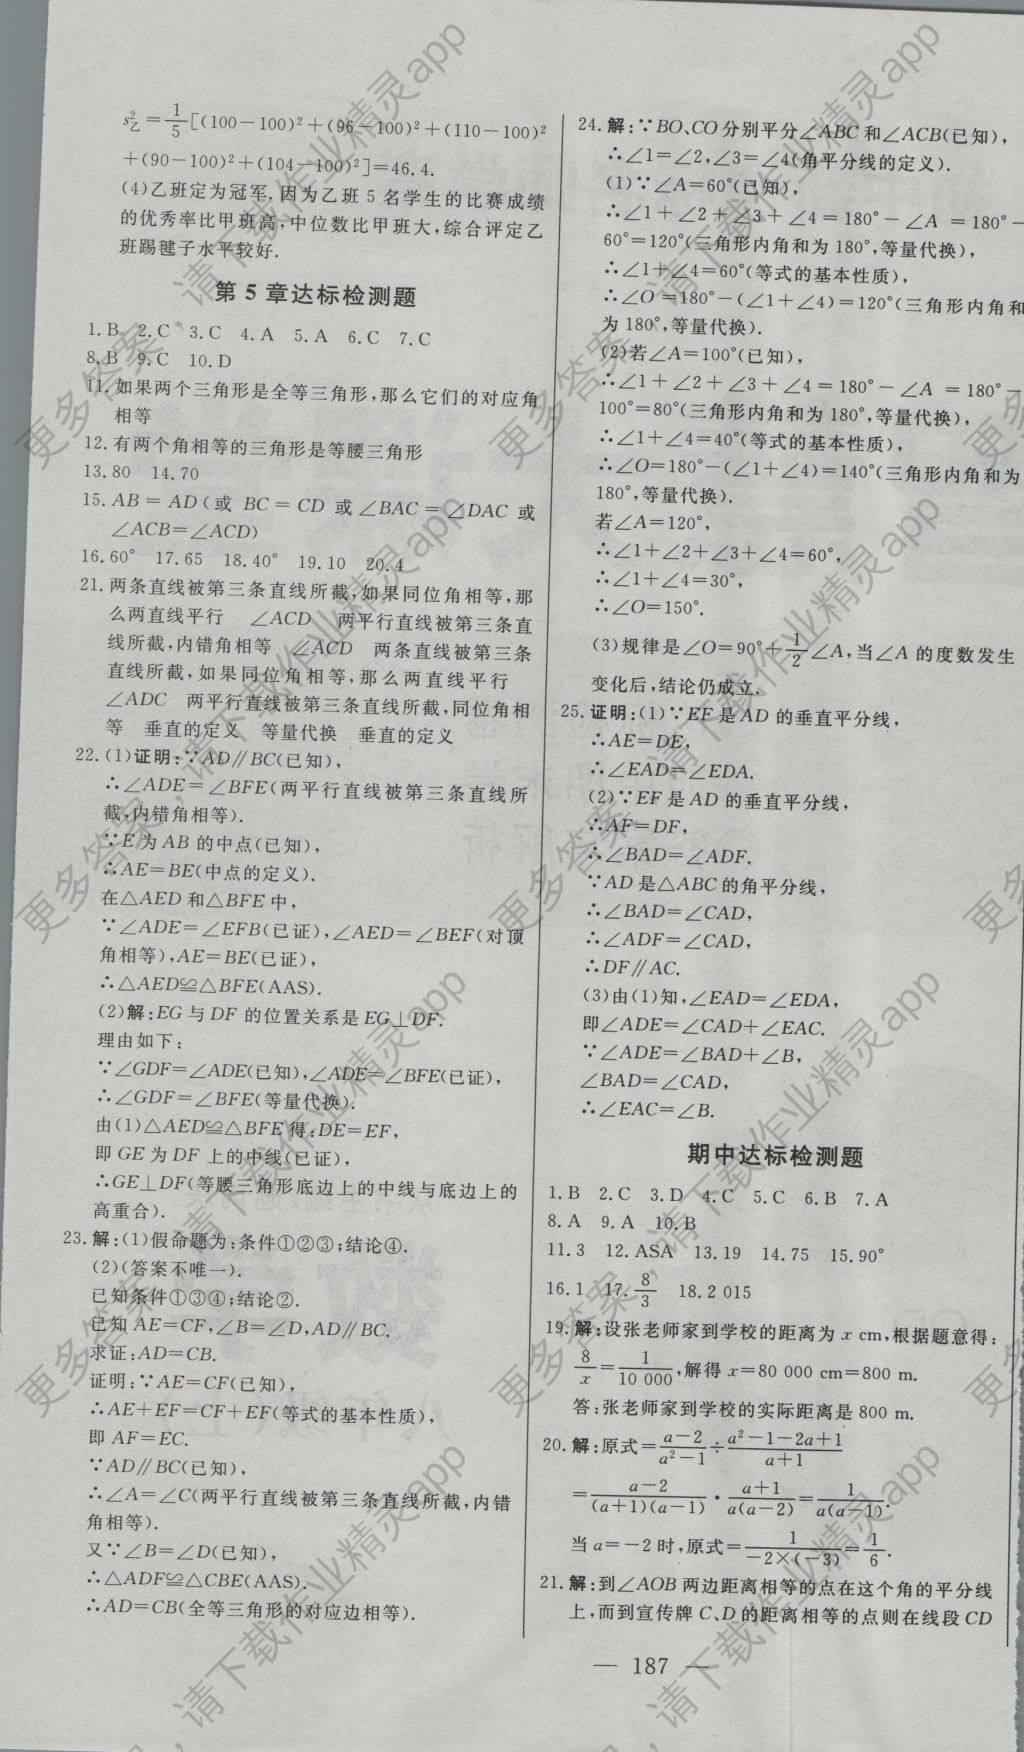 s²乙=1/5[(100-100)²+(96-100)²+(110-100)²
+(90-100)²+(104-100)²]=46.4.
(4)乙班定为冠军.因为乙班 5 名学生的比赛成绩
的优秀率比甲班高,中位数比甲班大,综合评定乙
班踢毽子水平较好.
第 5 章达标检测题
1.B 2.C 3.C 4.A 5.A 6.C 7.C
8.B 9.C 10.D
11.如果两个三角形是全等三角形,那么它们的对应角
相等
12.有两个角相等的三角形是等腰三角形
13.80 14.70
15.AB=AD(或 BC=CD 或∠BAC=∠DAC 或
∠ACB=∠ACD)
16.60° 17.65 18.40° 19.10 20.4
21.两条直线被第三条直线所截,如果同位角相等,那
么两直线平行 ∠ACD 两平行直线被第三条直
线所截,内错角相等 ∠ACD 两条直线被第三条
直线所截,如果同位角相等,那么两直线平行
∠ADC 两平行直线被第三条直线所截,同位角相
等 垂直的定义 等量代换 垂直的定义
22.(1)证明:∵AD∥BC(已知),
∴∠ADE=∠BFE(两平行直线被第三条直线所
截,内错角相等).
∵E 为 AB 的中点(已知),
∴AE=BE(中点的定义).
在△AED 和△BFE 中,
∵∠ADE=∠EFB(已证),∠AED=∠BEF(对顶
角相等),AE=BE(已证),
∴△AED≌△BFE(AAS).
(2)解:EG 与 DF 的位置关系是 EG⊥DF.
理由如下:
∵∠GDF=∠ADE(已知),∠ADE=∠BFE(已证),
∴∠GDF=∠BFE(等量代换).
由(1)△AED≌△BFE 得:DE=EF,
即 GE 为 DF 上的中线(已证),
∴GE⊥DF(等腰三角形底边上的中线与底边上的
高重合).
23.解:(1)假命题为:条件①②③;结论④.
(2)(答案不唯一).
已知条件①③④;结论②.
已知 AE=CF,∠B=∠D,AD∥BC.
求证:AD=CB.
证明:∵AE=CF(已知),
∴AE+EF=CF+EF(等式的基本性质),
即 AF=EC.
∵AD∥BC(已知),
∴∠A=∠C(两平行直线被第三条直线所截,内错
角相等).
又∵∠B=∠D(已知),
∴△ADF≌△CBE(AAS).
∴AD=CB(全等三角形的对应边相等).
24.解:∵BO、CO 分别平分∠ABC 和∠ACB(已知),
∴∠1=∠2,∠3=∠4(角平分线的定义).
(1)∵∠A=60°(已知),
∴∠1+∠2+∠3+∠4=180°-∠A=180°-
60°=120°(三角形内角和为 180°,等量代换),
∴∠1+∠4=60°(等式的基本性质),
∴∠O=180°-(∠1+∠4)=120°(三角形内角和
为 180°,等量代换).
(2)若∠A=100°(已知),
∴∠1+∠2+∠3+∠4=180°-∠A=180°-
100°=80°(三角形内角和为 180°,等量代换),
∴∠1+∠4=40°(等式的基本性质),
∴∠O=180°-(∠1+∠4)=140°(三角形内角和为
180°,等量代换).
若∠A=120°,
∴∠1+∠2+∠3+∠4=60°,
∴∠1+∠4=30°,
∴∠O=150°.
(3)规律是∠O=90°+1/2∠A,当∠A 的度数发生
变化后,结论仍成立.
25.证明:(1)∵EF 是 AD 的垂直平分线,
∴AE=DE,
∴∠EAD=∠EDA.
(2)∵EF 是 AD 的垂直平分线,
∴AF=DF,
∴∠BAD=∠ADF.
∵AD 是△ABC 的角平分线,
∴∠BAD=∠CAD,
∴∠ADF=∠CAD,
∴DF∥AC.
(3)由(1)知,∠EAD=∠EDA,
即∠ADE=∠CAD+∠EAC.
∵∠ADE=∠BAD+∠B,
∠BAD=∠CAD,
∴∠EAC=∠B.
期中达标检测题
1.B 2.C 3.D 4.C 5.C 6.B 7.A
8.A 9.A 10.B
11.3 12.ASA 13.19 14.75 15.90°
16.1 17.8/3 18.2 015
19.解:设张老师家到学校的距离为 x cm,根据题意得:
8/x=1/10 000,解得 x=80 000 cm=800 m.
答:张老师家到学校的实际距离是 800 m.
20.解:原式=(a-2)/(a²-1)÷(a²-1-2a+1)/(a+1)
=(a-2)/((a+1)(a-1))·(a+1)/(a(a-2))=1/(a(a-1)).
当 a=-2 时,原式=1/(-2×(-3))=1/6.
21.解:到∠AOB 两边距离相等的点在这个角的平分线
上,而到宣传牌 C、D 的距离相等的点则在线段 CD
— 187 —
更多答案,请下载作业精灵app